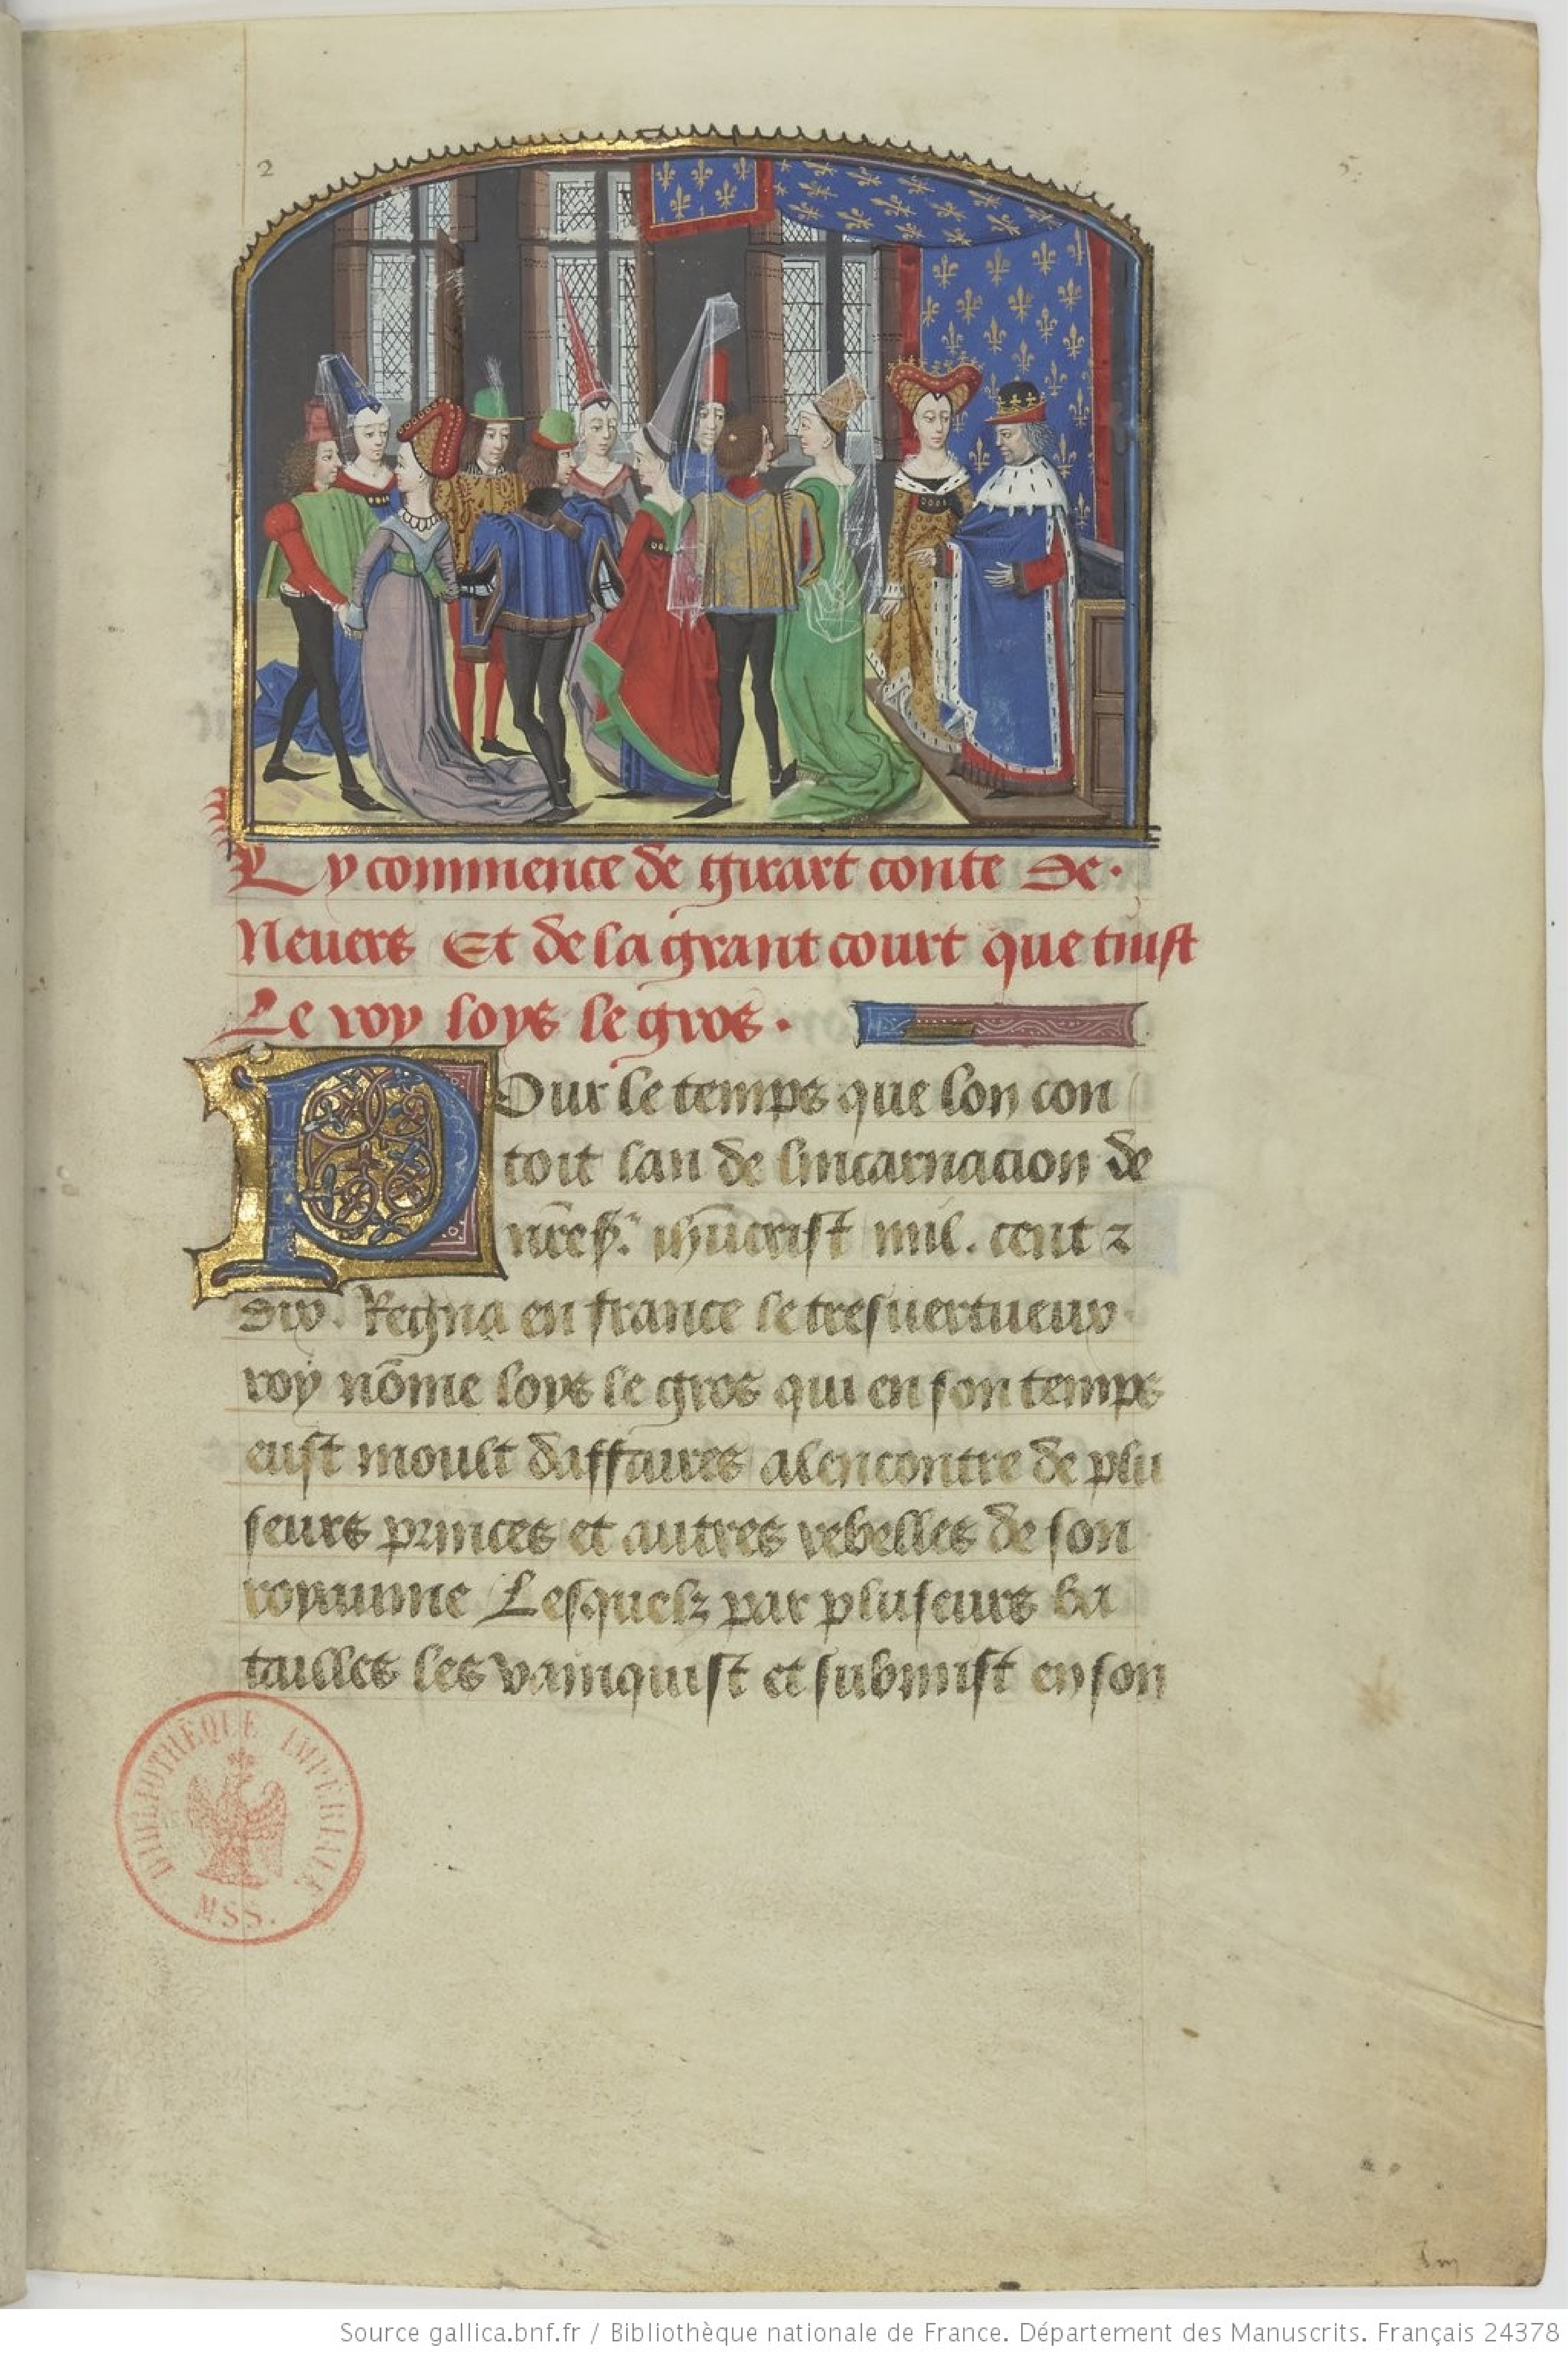 2
5
Cy commence de girart conte de.
Neuers Et de la grant court que tinst
Le roy loys le gros.
POur le temps que lon con
toit lan de lincarnacion de
nr̄e sr. ihūcrist mil. cent ⁊
dix. Regna en france le tresuertueux
roy nōme loys le gros qui en son temps
eust moult daffaires alencontre de plu
seurs princes et autres rebelles de son
royaume Lesquelz par pluseurs ba
tailles les vainquist et submist en son
BIBLIOTHÈQUE IMPÉRIALE
MSS.
Source gallica.bnf.fr / Bibliothèque nationale de France. Département des Manuscrits. Français 24378